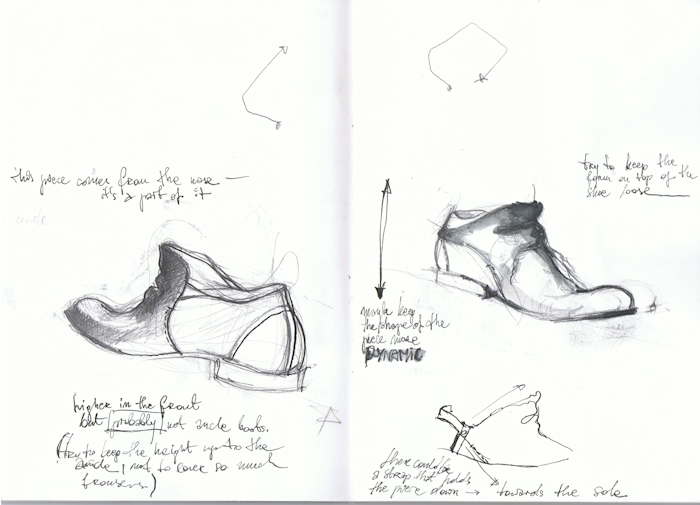 this piece comes from the nose —
it's a part of it
higher in the front
but probably not ancle boots.
(try to keep the height up to the
ancle, not to cover so much
trousers)
try to keep the
form on top of the
shoe loose
maybe keep
the shape of the
piece more
DYNAMIC
there could be
a strap that holds
the piece down → towards the sole